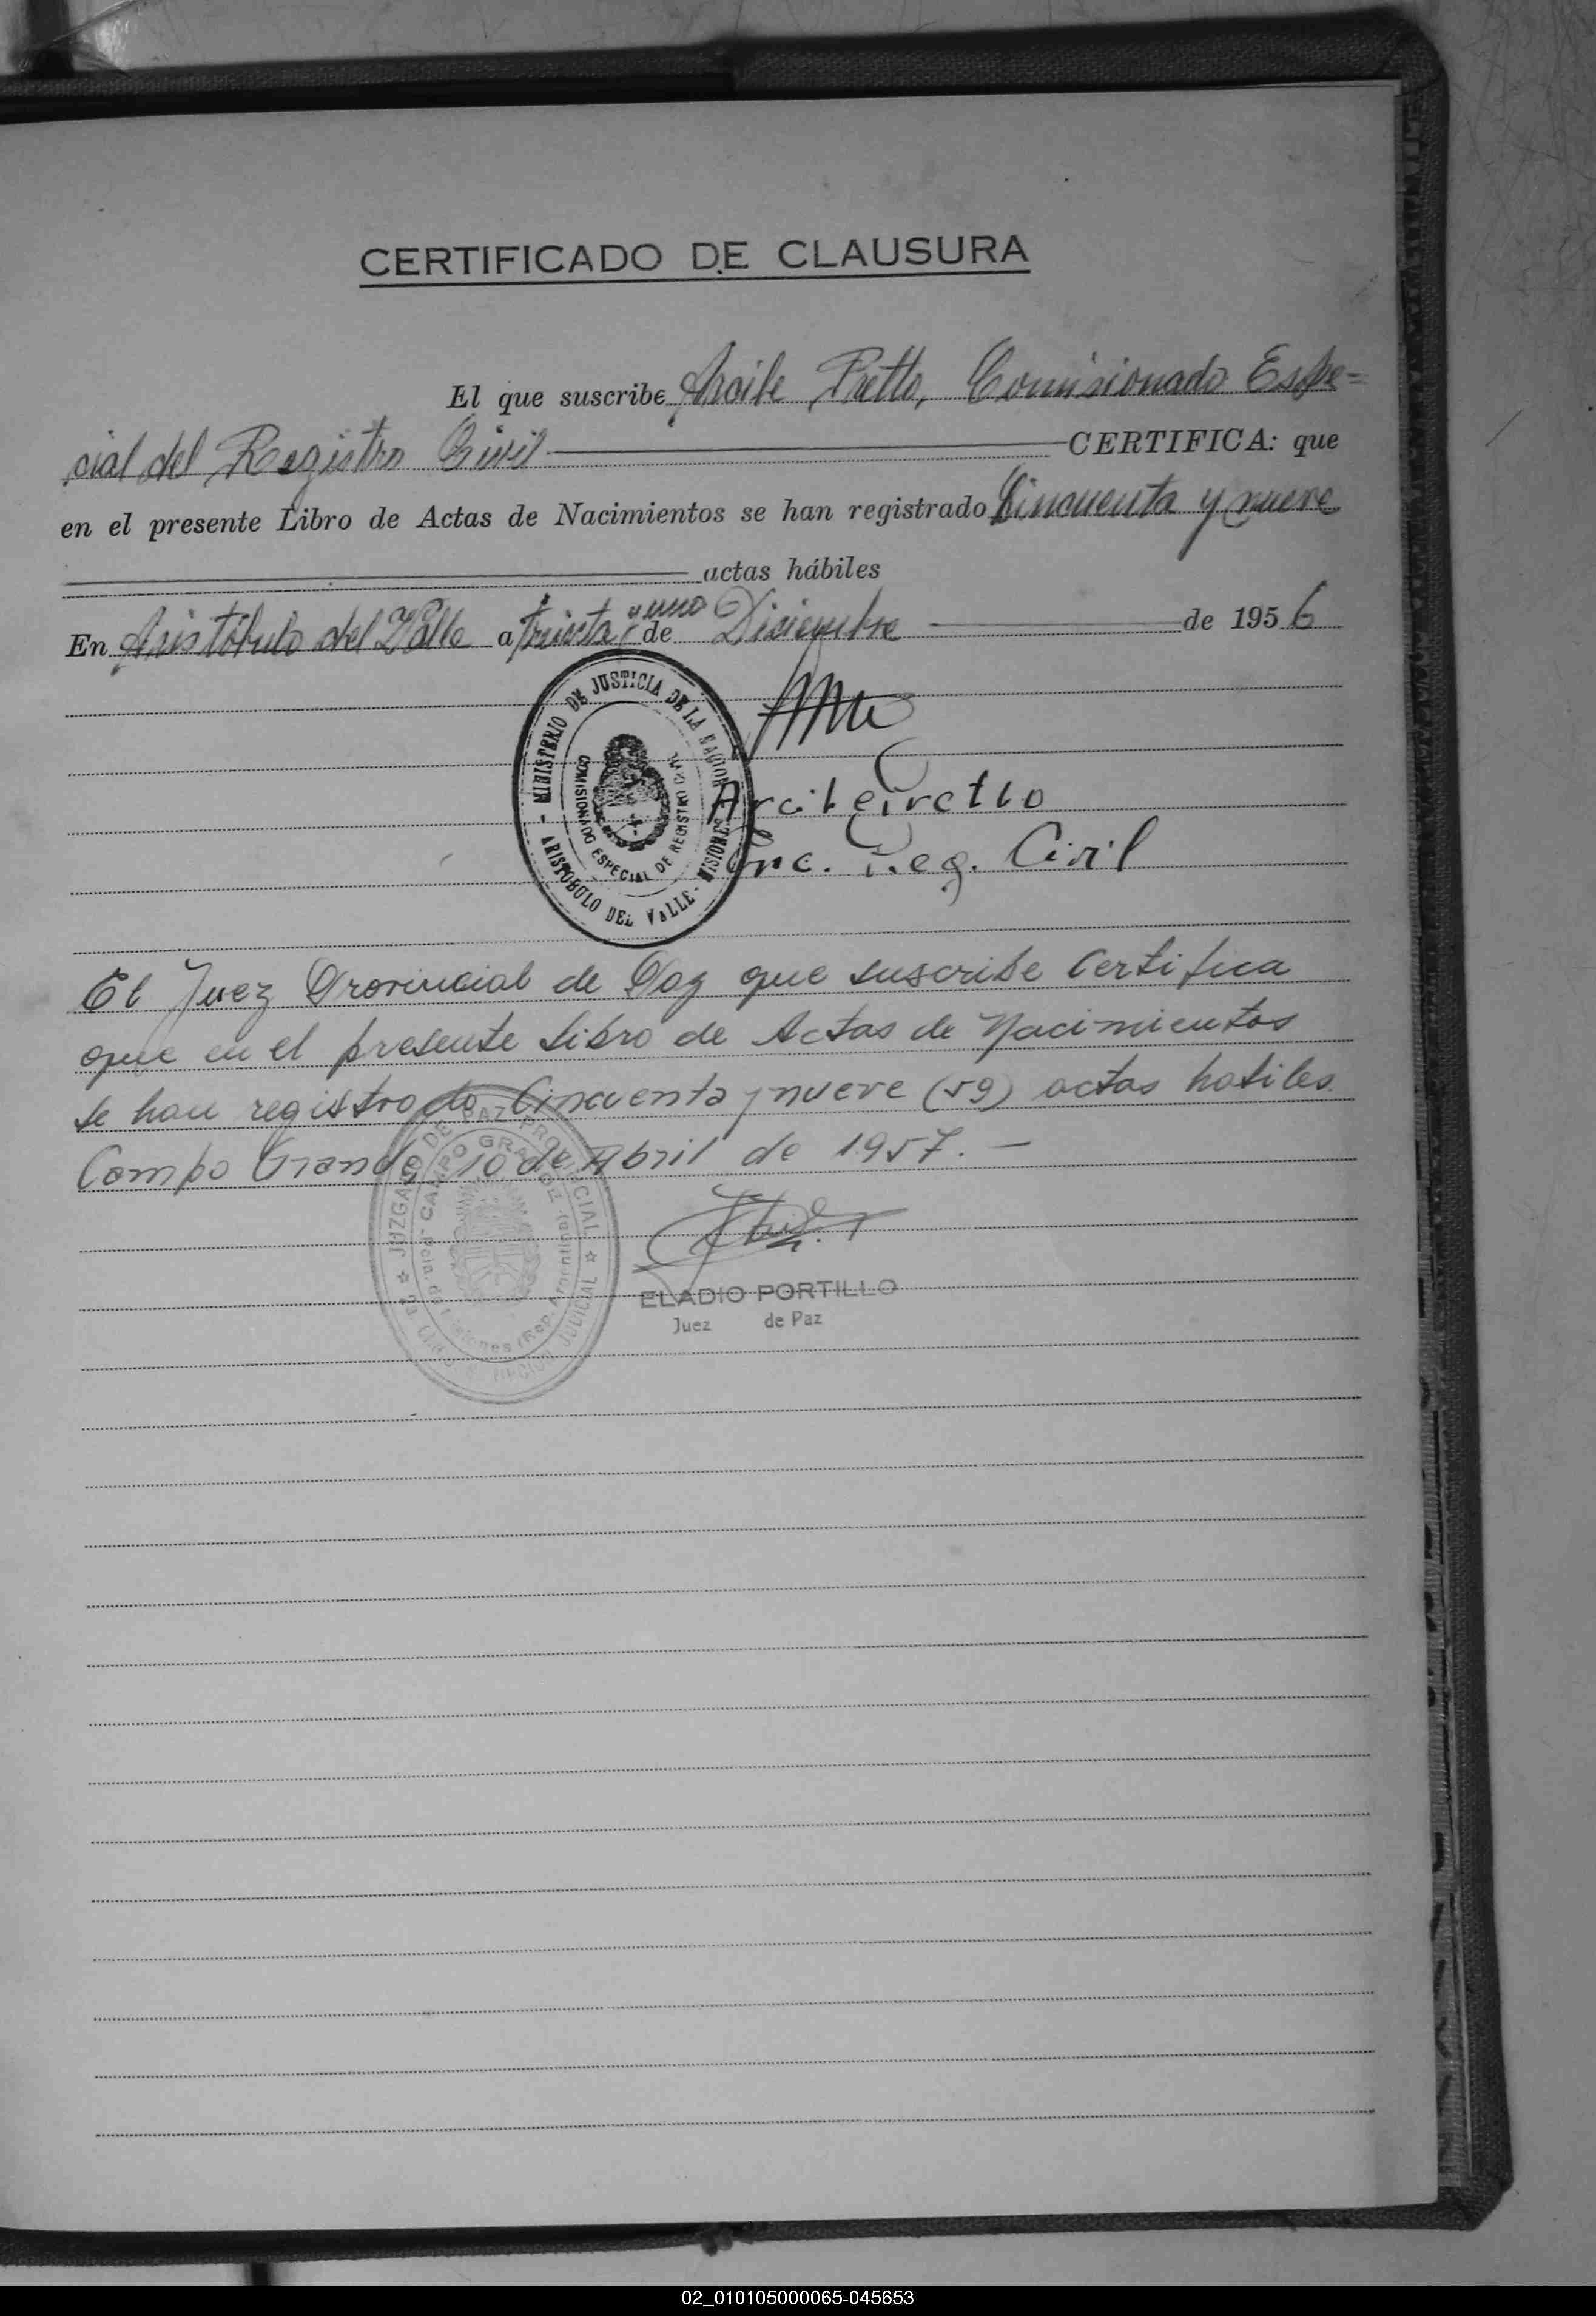 CERTIFICADO DE CLAUSURA
El que suscribe Arcile Pretto, Comisionado Espe=
cial del Registro Civil CERTIFICA: que
en el presente Libro de Actas de Nacimientos se han registrado Cincuenta y nueve
actas hábiles
En Aristóbulo del Valle a treinta y uno de Diciembre de 1956
MINISTERIO DE JUSTICIA DE LA NACION
COMISIONADO ESPECIAL DE REGISTRO CIVIL
ARISTOBULO DEL VALLE - MISIONES
Arcile Pretto
Enc. Reg. Civil
El Juez Provincial de Paz que suscribe Certifica
que en el presente Libro de Actas de Nacimientos
se han registrado Cincuenta y nueve (59) actas habiles
Campo Grande, 10 de Abril de 1957. —
JUZGADO DE PAZ PROVINCIAL
CAMPO GRANDE
JUDICIAL
ELADIO PORTILLO
Juez de Paz
02_010105000065-045653